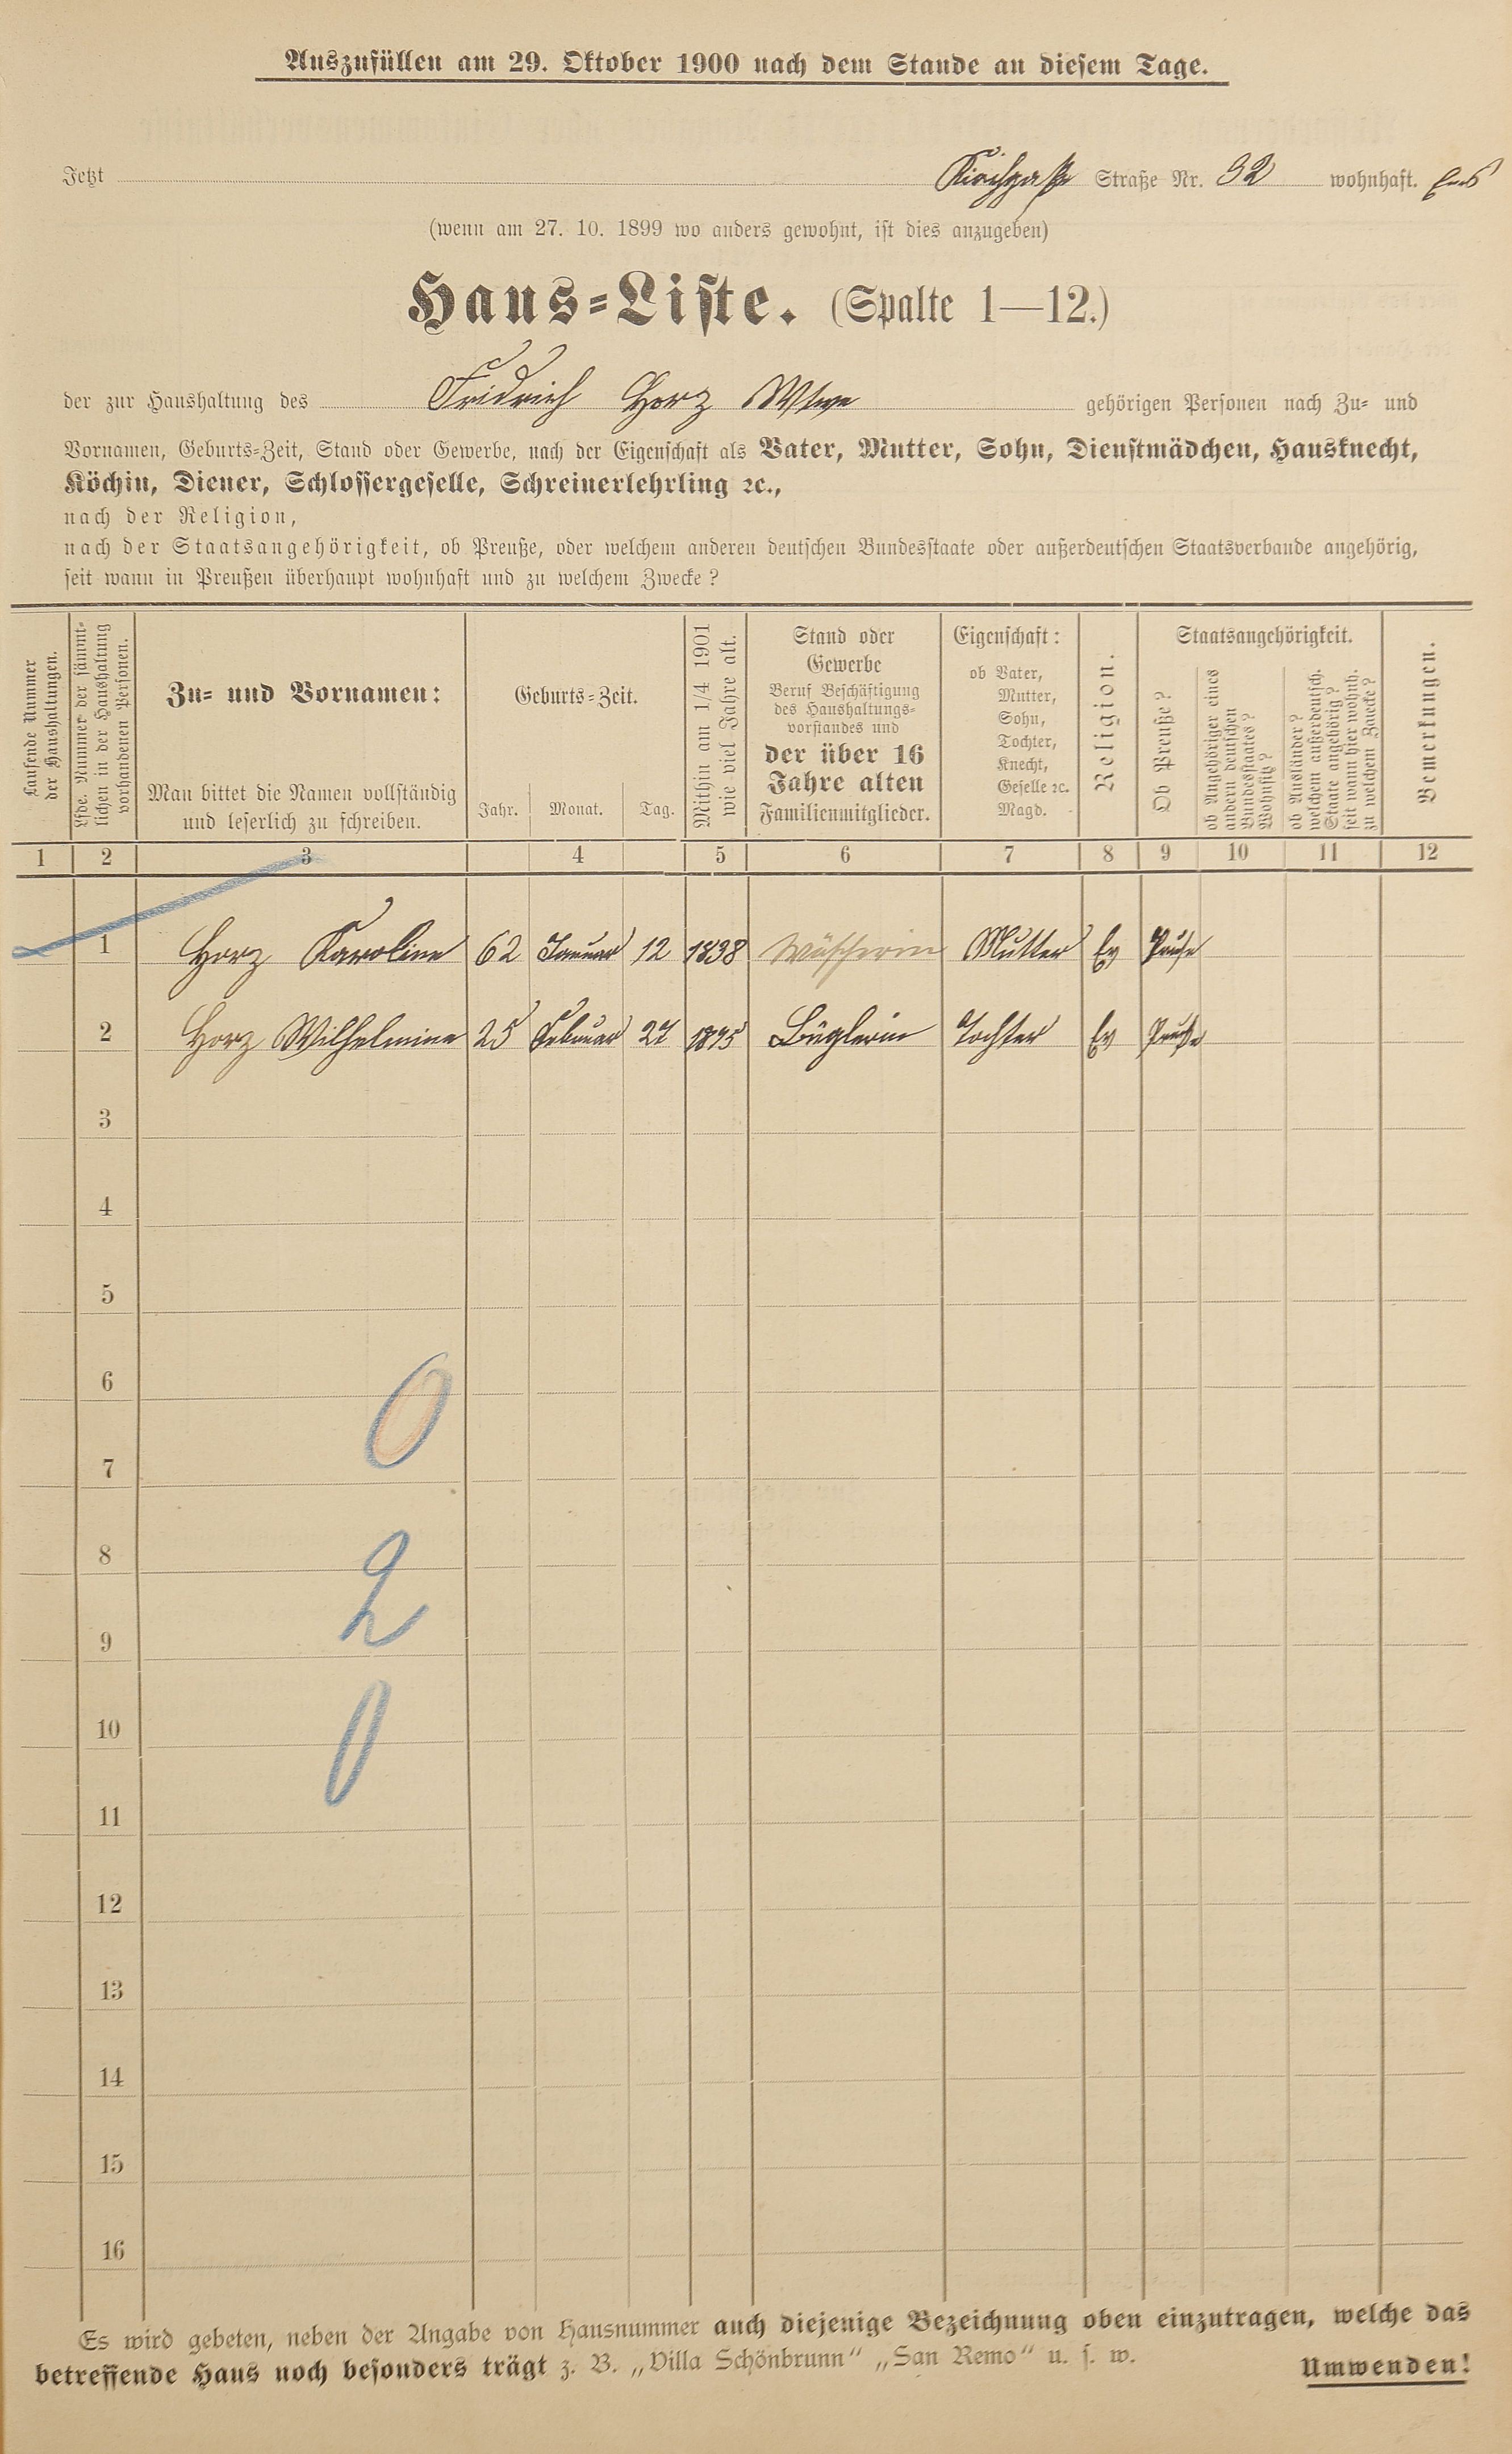 Auszufüllen am 29. Oktober 1900 nach dem Stande an diesem Tage.
Jetzt Kirchgaße Straße Nr. 32 wohnhaft. Ems
(wenn am 27. 10. 1899 wo anders gewohnt, ist dies anzugeben)
Haus-Liste. (Spalte 1—12.)
der zur Haushaltung des Fridrich Horz Wtwe gehörigen Personen nach Zu- und
Vornamen, Geburts-Zeit, Stand oder Gewerbe, nach der Eigenschaft als Vater, Mutter, Sohn, Dienstmädchen, Hausknecht,
Köchin, Diener, Schlossergeselle, Schreinerlehrling ꝛc.,
nach der Religion,
nach der Staatsangehörigkeit, ob Preuße, oder welchem anderen deutschen Bundesstaate oder außerdeutschen Staatsverbande angehörig,
seit wann in Preußen überhaupt wohnhaft und zu welchem Zwecke?
Laufende Nummer
der Haushaltungen.
Lfde. Nummer der sämmt-
lichen in der Haushaltung
vorhandenen Personen.
Zu- und Vornamen:
Man bittet die Namen vollständig
und leserlich zu schreiben.
Geburts-Zeit.
Jahr. Monat. Tag.
Mithin am 1/4 1901
wie viel Jahre alt.
Stand oder
Gewerbe
Beruf Beschäftigung
des Haushaltungs-
vorstandes und
der über 16
Jahre alten
Familienmitglieder.
Eigenschaft:
ob Vater,
Mutter,
Sohn,
Tochter,
Knecht,
Geselle ꝛc.
Magd.
Religion.
Staatsangehörigkeit.
Ob Preuße?
ob Angehöriger eines
andern deutschen
Bundesstaates?
Wohnsitz?
ob Ausländer?
welchem außerdeutsch.
Staate angehörig?
seit wann hier wohnh.
zu welchem Zwecke?
Bemerkungen.
1 2 3 4 5 6 7 8 9 10 11 12
1 Horz Karoline 62 Januar 12 1838 Wäscherin Mutter Ev Preuße
2 Horz Wilhelmine 25 Februar 27 1875 Büglerin Tochter Ev Preuße
3
4
5
6
0
7
8
2
9
10
0
11
12
13
14
15
16
Es wird gebeten, neben der Angabe von Hausnummer auch diejenige Bezeichnung oben einzutragen, welche das
betreffende Haus noch besonders trägt z. B. „Villa Schönbrunn“ „San Remo“ u. s. w.
Umwenden!